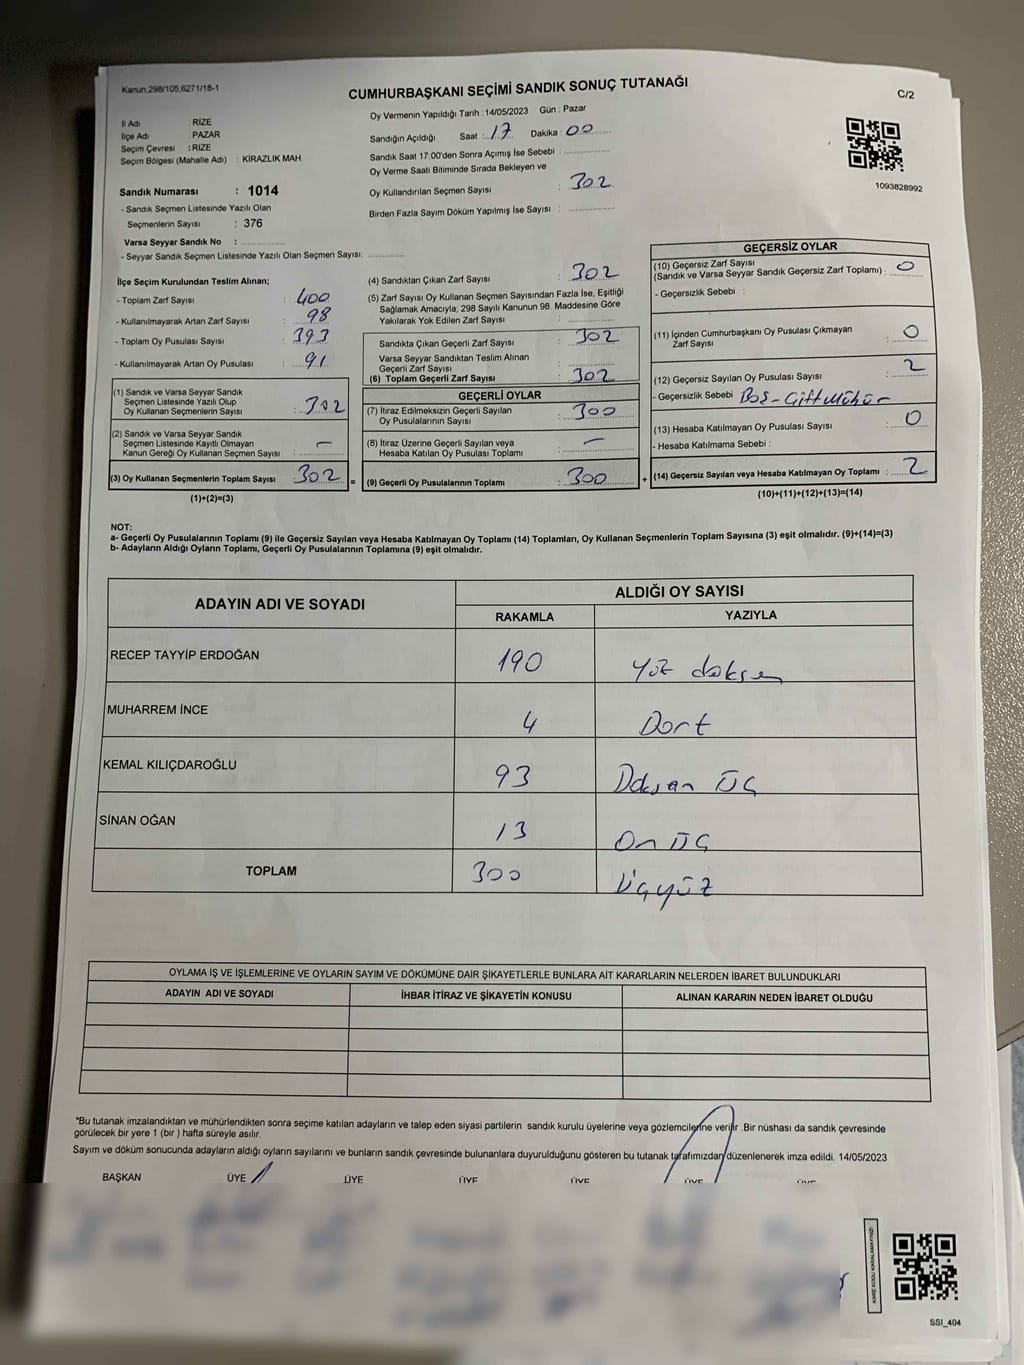 Kanun,298/105,6271/18-1
CUMHURBAŞKANI SEÇİMİ SANDIK SONUÇ TUTANAĞI
C/2
İl Adı : RİZE
İlçe Adı : PAZAR
Seçim Çevresi : RİZE
Seçim Bölgesi (Mahalle Adı) : KİRAZLIK MAH.
Sandık Numarası : 1014
- Sandık Seçmen Listesinde Yazılı Olan
Seçmenlerin Sayısı : 376
Varsa Seyyar Sandık No :
- Seyyar Sandık Seçmen Listesinde Yazılı Olan Seçmen Sayısı:
Oy Vermenin Yapıldığı Tarih : 14/05/2023 Gün : Pazar
Sandığın Açıldığı Saat : 17 Dakika : 00
Sandık Saat 17:00'den Sonra Açımış İse Sebebi :
Oy Verme Saati Bitiminde Sırada Bekleyen ve
Oy Kullandırılan Seçmen Sayısı : 302
Birden Fazla Sayım Döküm Yapılmış İse Sayısı :
1093828992
İlçe Seçim Kurulundan Teslim Alınan;
- Toplam Zarf Sayısı : 400
- Kullanılmayarak Artan Zarf Sayısı : 98
- Toplam Oy Pusulası Sayısı : 393
- Kullanılmayarak Artan Oy Pusulası : 91
(1) Sandık ve Varsa Seyyar Sandık
Seçmen Listesinde Yazılı Olup
Oy Kullanan Seçmenlerin Sayısı : 302
(2) Sandık ve Varsa Seyyar Sandık
Seçmen Listesinde Kayıtlı Olmayan
Kanun Gereği Oy Kullanan Seçmen Sayısı : –
(3) Oy Kullanan Seçmenlerin Toplam Sayısı 302 =
(1)+(2)=(3)
(4) Sandıktan Çıkan Zarf Sayısı : 302
(5) Zarf Sayısı Oy Kullanan Seçmen Sayısından Fazla İse, Eşitliği
Sağlamak Amacıyla; 298 Sayılı Kanunun 98. Maddesine Göre
Yakılarak Yok Edilen Zarf Sayısı :
Sandıkta Çıkan Geçerli Zarf Sayısı : 302
Varsa Seyyar Sandıktan Teslim Alınan
Geçerli Zarf Sayısı :
(6) Toplam Geçerli Zarf Sayısı : 302
GEÇERLİ OYLAR
(7) İtiraz Edilmeksizin Geçerli Sayılan
Oy Pusulasının Sayısı : 300
(8) İtiraz Üzerine Geçerli Sayılan veya
Hesaba Katılan Oy Pusulası Toplamı : –
(9) Geçerli Oy Pusulalarının Toplamı : 300 +
GEÇERSİZ OYLAR
(10) Geçersiz Zarf Sayısı
(Sandık ve Varsa Seyyar Sandık Geçersiz Zarf Toplamı) : 0
- Geçersizlik Sebebi :
(11) İçinden Cumhurbaşkanı Oy Pusulası Çıkmayan
Zarf Sayısı : 0
(12) Geçersiz Sayılan Oy Pusulası Sayısı : 2
- Geçersizlik Sebebi Boş - Çift Mühür
(13) Hesaba Katılmayan Oy Pusulası Sayısı : 0
- Hesaba Katılmama Sebebi :
(14) Geçersiz Sayılan veya Hesaba Katılmayan Oy Toplamı : 2
(10)+(11)+(12)+(13)=(14)
NOT:
a- Geçerli Oy Pusulalarının Toplamı (9) ile Geçersiz Sayılan veya Hesaba Katılmayan Oy Toplamı (14) Toplamları, Oy Kullanan Seçmenlerin Toplam Sayısına (3) eşit olmalıdır. (9)+(14)=(3)
b- Adayların Aldığı Oyların Toplamı, Geçerli Oy Pusulalarının Toplamına (9) eşit olmalıdır.
ADAYIN ADI VE SOYADI
ALDIĞI OY SAYISI
RAKAMLA YAZIYLA
RECEP TAYYİP ERDOĞAN 190 Yüz doksan
MUHARREM İNCE 4 Dört
KEMAL KILIÇDAROĞLU 93 Doksan ÜÇ
SİNAN OĞAN 13 On ÜÇ
TOPLAM 300 Üçyüz
OYLAMA İŞ VE İŞLEMLERİNE VE OYLARIN SAYIM VE DÖKÜMÜNE DAİR ŞİKAYETLERLE BUNLARA AİT KARARLARIN NELERDEN İBARET BULUNDUKLARI
ADAYIN ADI VE SOYADI
İHBAR İTİRAZ VE ŞİKAYETİN KONUSU
ALINAN KARARIN NEDEN İBARET OLDUĞU
*Bu tutanak imzalandıktan ve mühürlendikten sonra seçime katılan adayların ve talep eden siyasi partilerin sandık kurulu üyelerine veya gözlemcilerine verilir .Bir nüshası da sandık çevresinde
görülecek bir yere 1 (bir ) hafta süreyle asılır.
Sayım ve döküm sonucunda adayların aldığı oyların sayılarını ve bunların sandık çevresinde bulunanlara duyurulduğunu gösteren bu tutanak tarafımızdan düzenlenerek imza edildi. 14/05/2023
BAŞKAN ÜYE ÜYE ÜYE ÜYE ÜYE ÜYE
KARE KODU KARALAMAYINIZ!
SSI_404